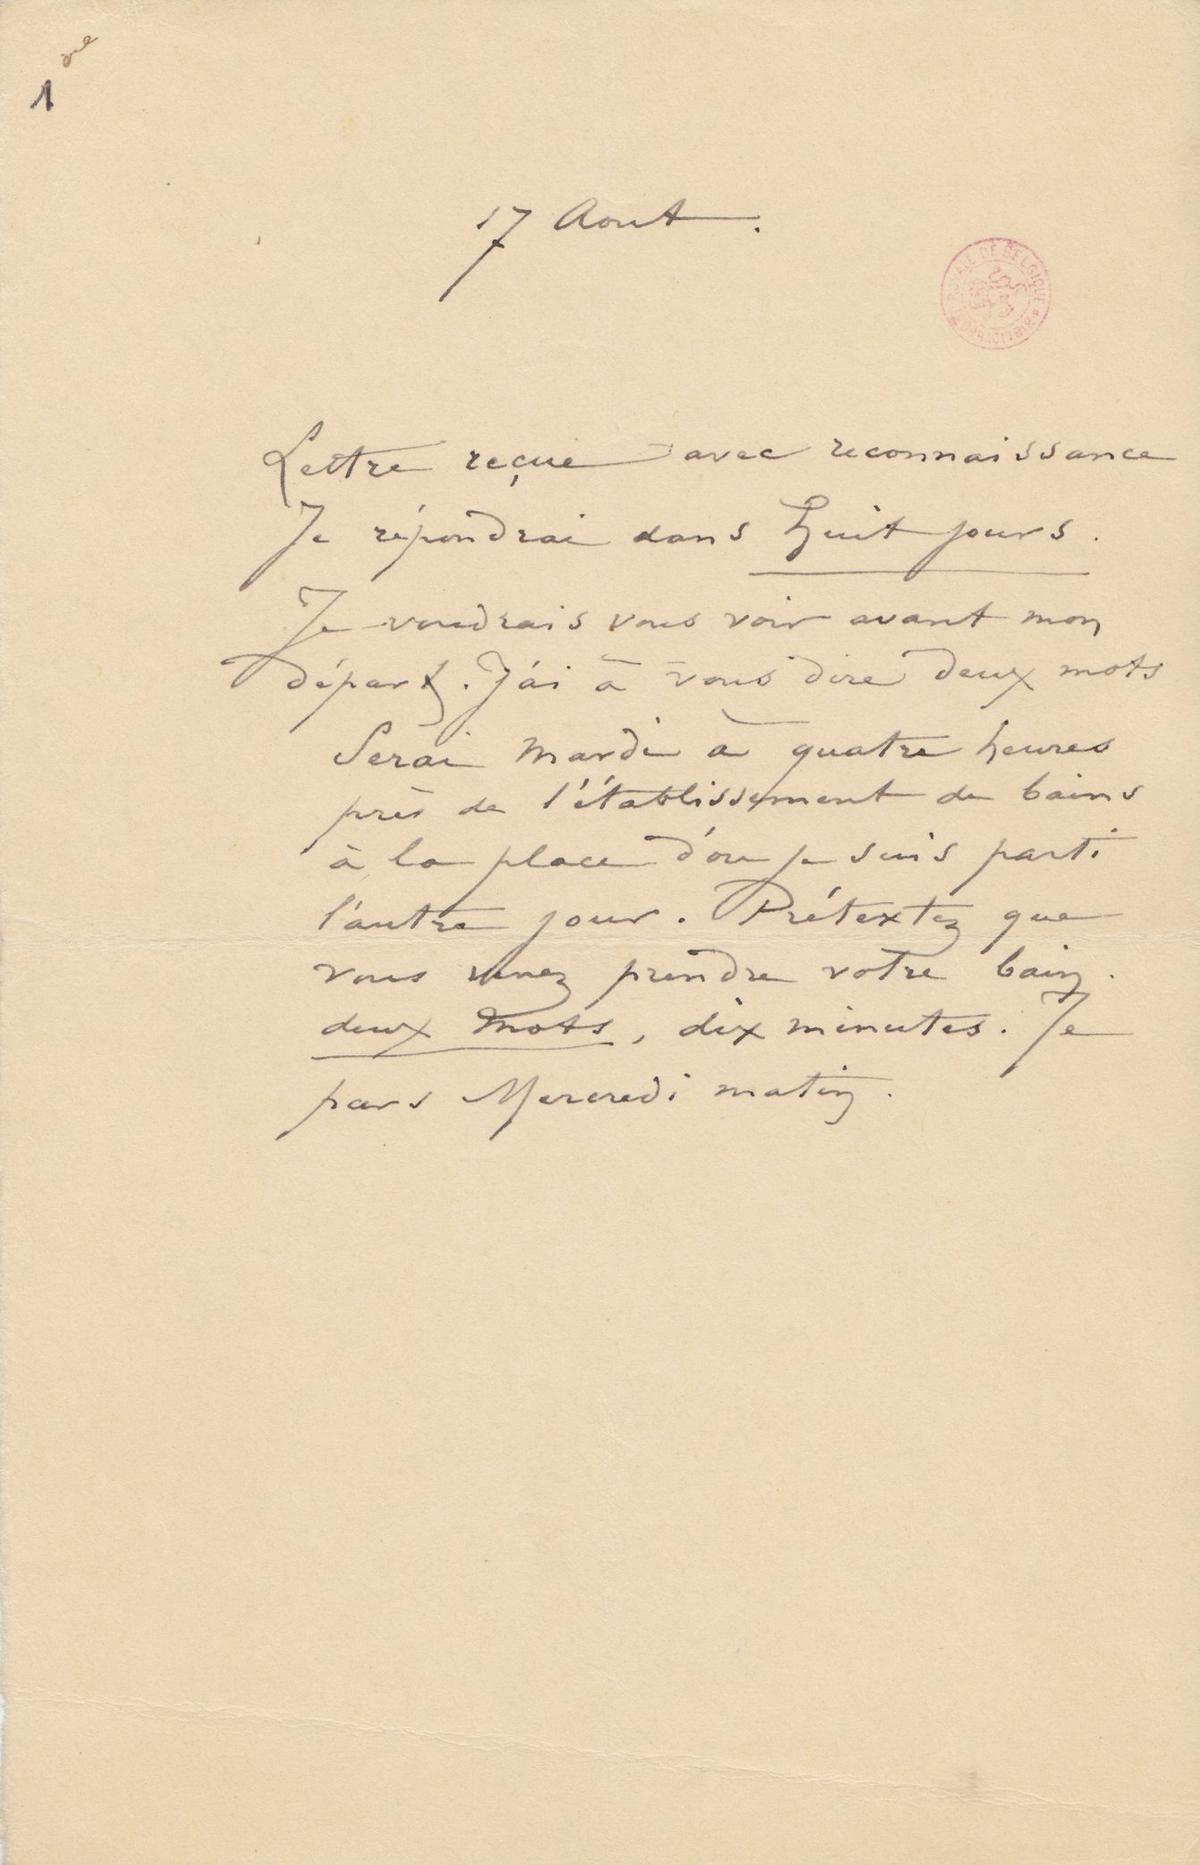 1
17 Aout.
BIBLIOTHÈQUE ROYALE DE BELGIQUE
Lettre reçue avec reconnaissance
Je répondrai dans huit jours.
Je voudrais vous voir avant mon
départ. J'ai à vous dire deux mots
Serai Mardi à quatre heures
près de l'établissement de bains
à la place d'ou je suis parti
l'autre jour. Prétextez que
vous venez prendre votre bain.
deux mots, dix minutes. Je
pars Mercredi matin.